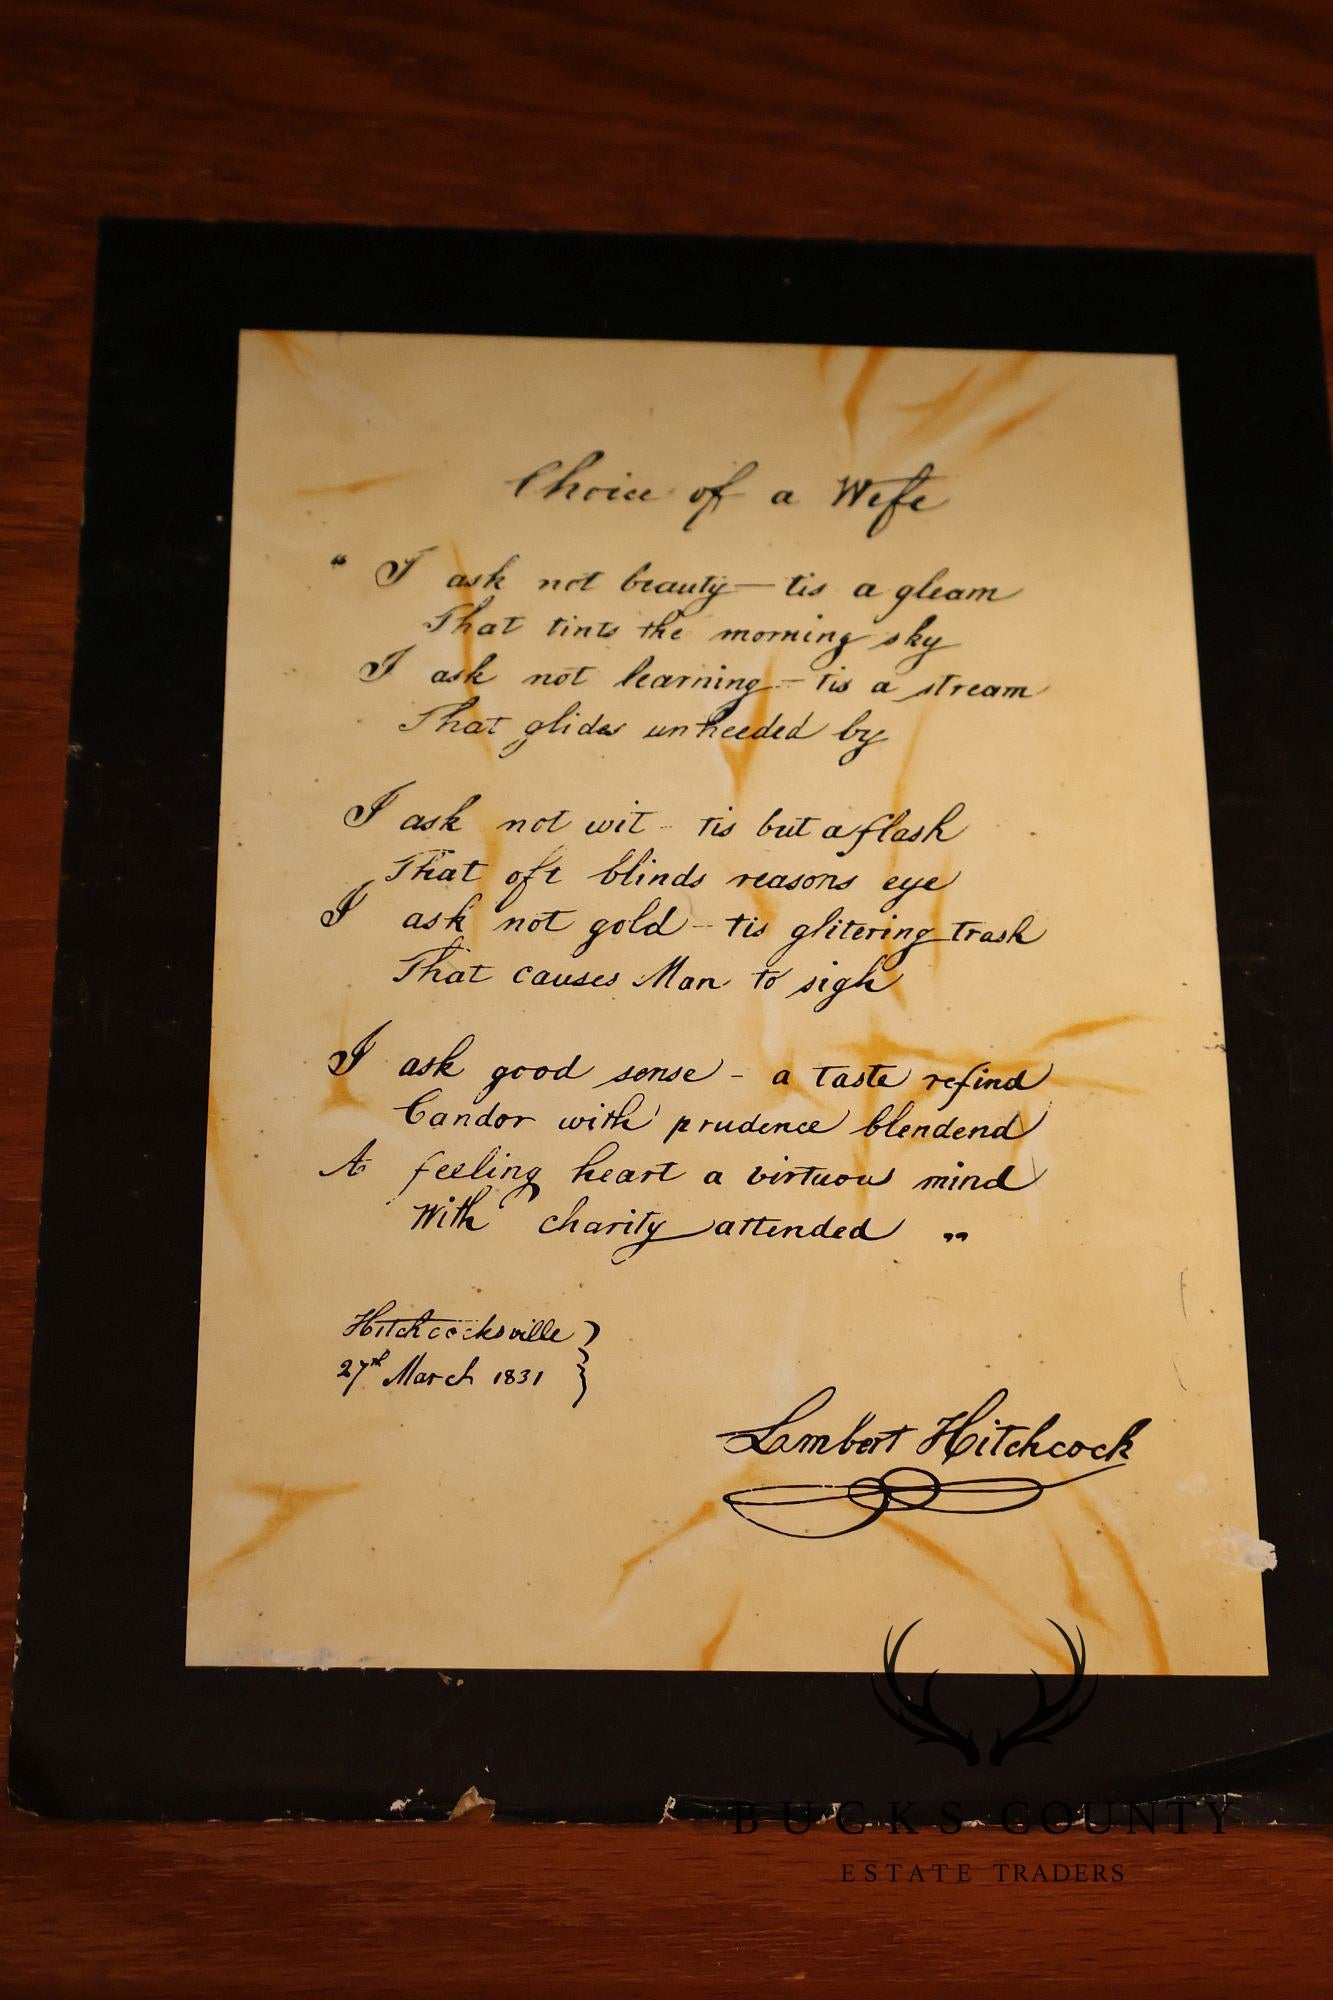 Choice of a Wife
" I ask not beauty — tis a gleam
That tints the morning sky
I ask not learning – tis a stream
That glides unheeded by
I ask not wit – tis but a flash
That oft blinds reasons eye
I ask not gold – tis glitering trash
That causes Man to sigh
I ask good sense – a taste refind
Candor with prudence blendend
A feeling heart a virtuous mind
With charity attended "
Hitchcocksville }
27th March 1831 }
Lambert Hitchcock
BUCKS COUNTY
ESTATE TRADERS